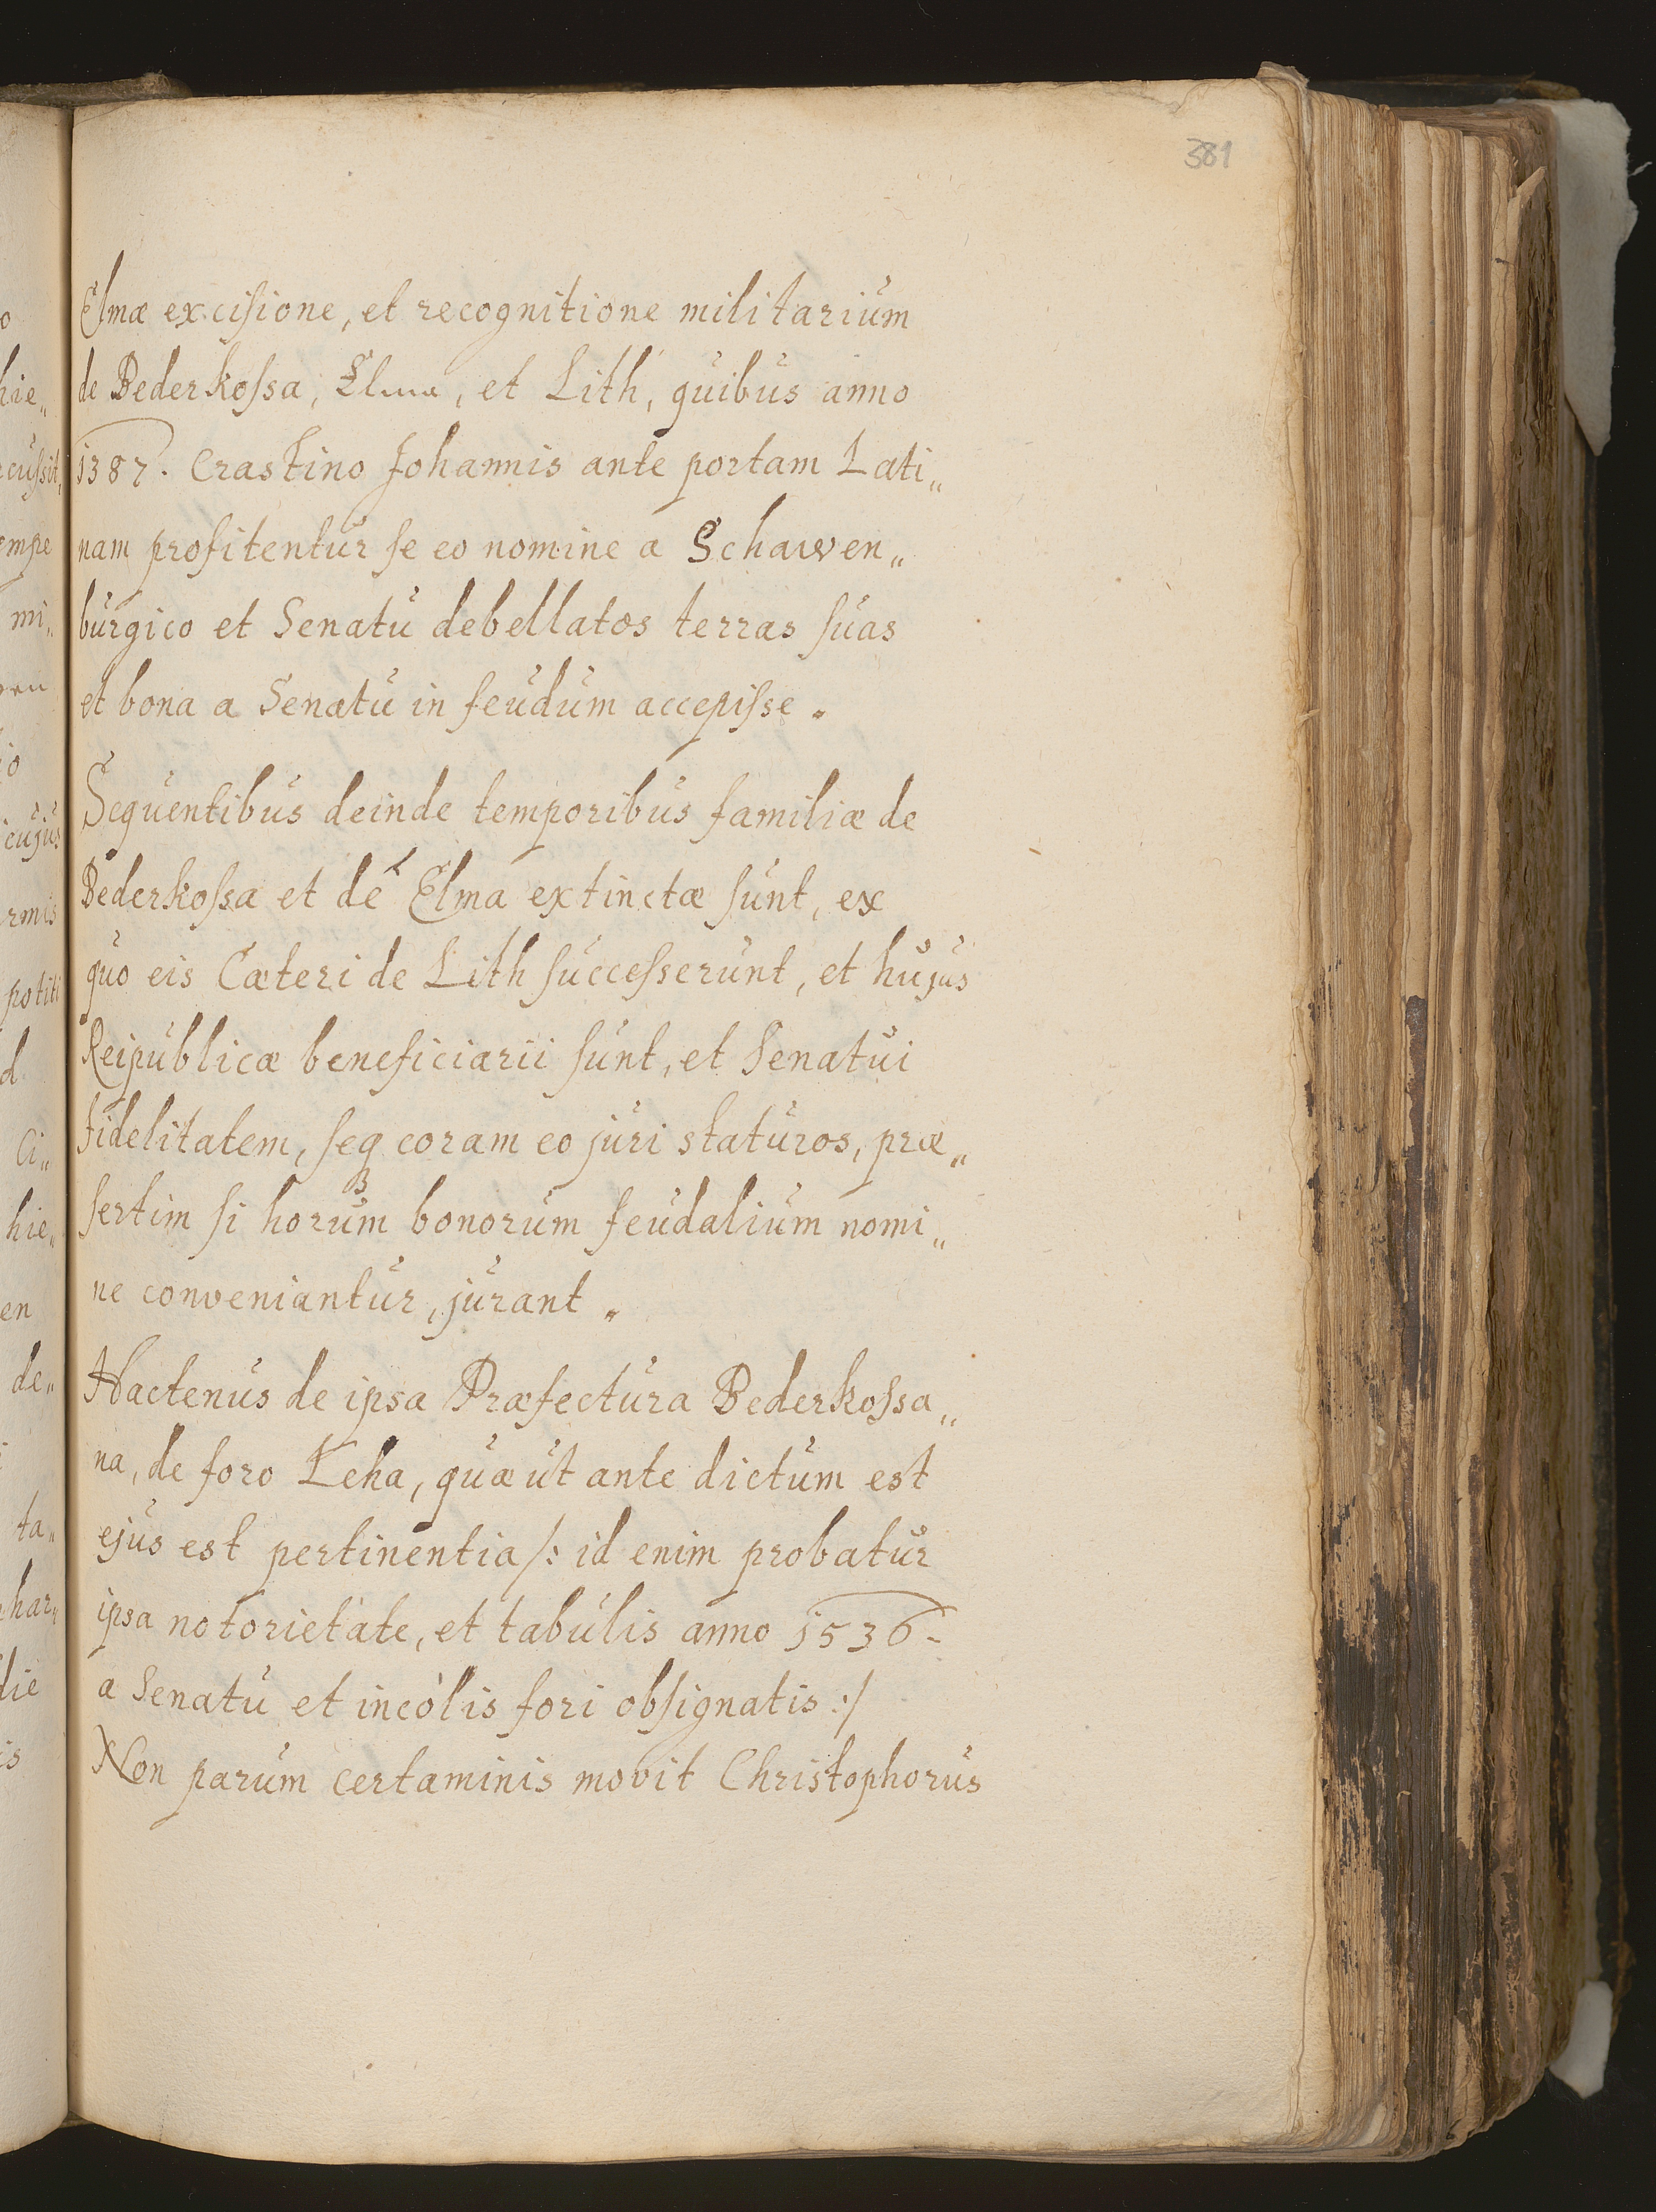 381
Elmæ excisione, et recognitione militarium
de Bederkossa, Elma, et Lith, quibus anno
1387. Crastino Johannis ante portam Lati„
nam profitentur se eo nomine a Schawen„
burgico et Senatu debellatos terras suas
et bona a Senatu in feudum accepisse.
Sequentibus deinde temporibus familiæ de
Bederkossa et de Elma extinctæ sunt, ex
quo eis Cæteri de Lith successerunt, et hujus
Reipublicæ beneficiarii sunt, et Senatui
fidelitatem, seq coram eo juri staturos, præ„
sertim si horum bonorum feudalium nomi„
ne conveniantur, jurant.
Hactenus de ipsa Præfectura Bederkossa„
na, de foro Leha, quæ ut ante dictum est
ejus est pertinentia /: id enim probatur
ipsa notorietate, et tabulis anno 1536.
a Senatu et incolis fori obsignatis :/
Non parum certaminis movit Christophorus